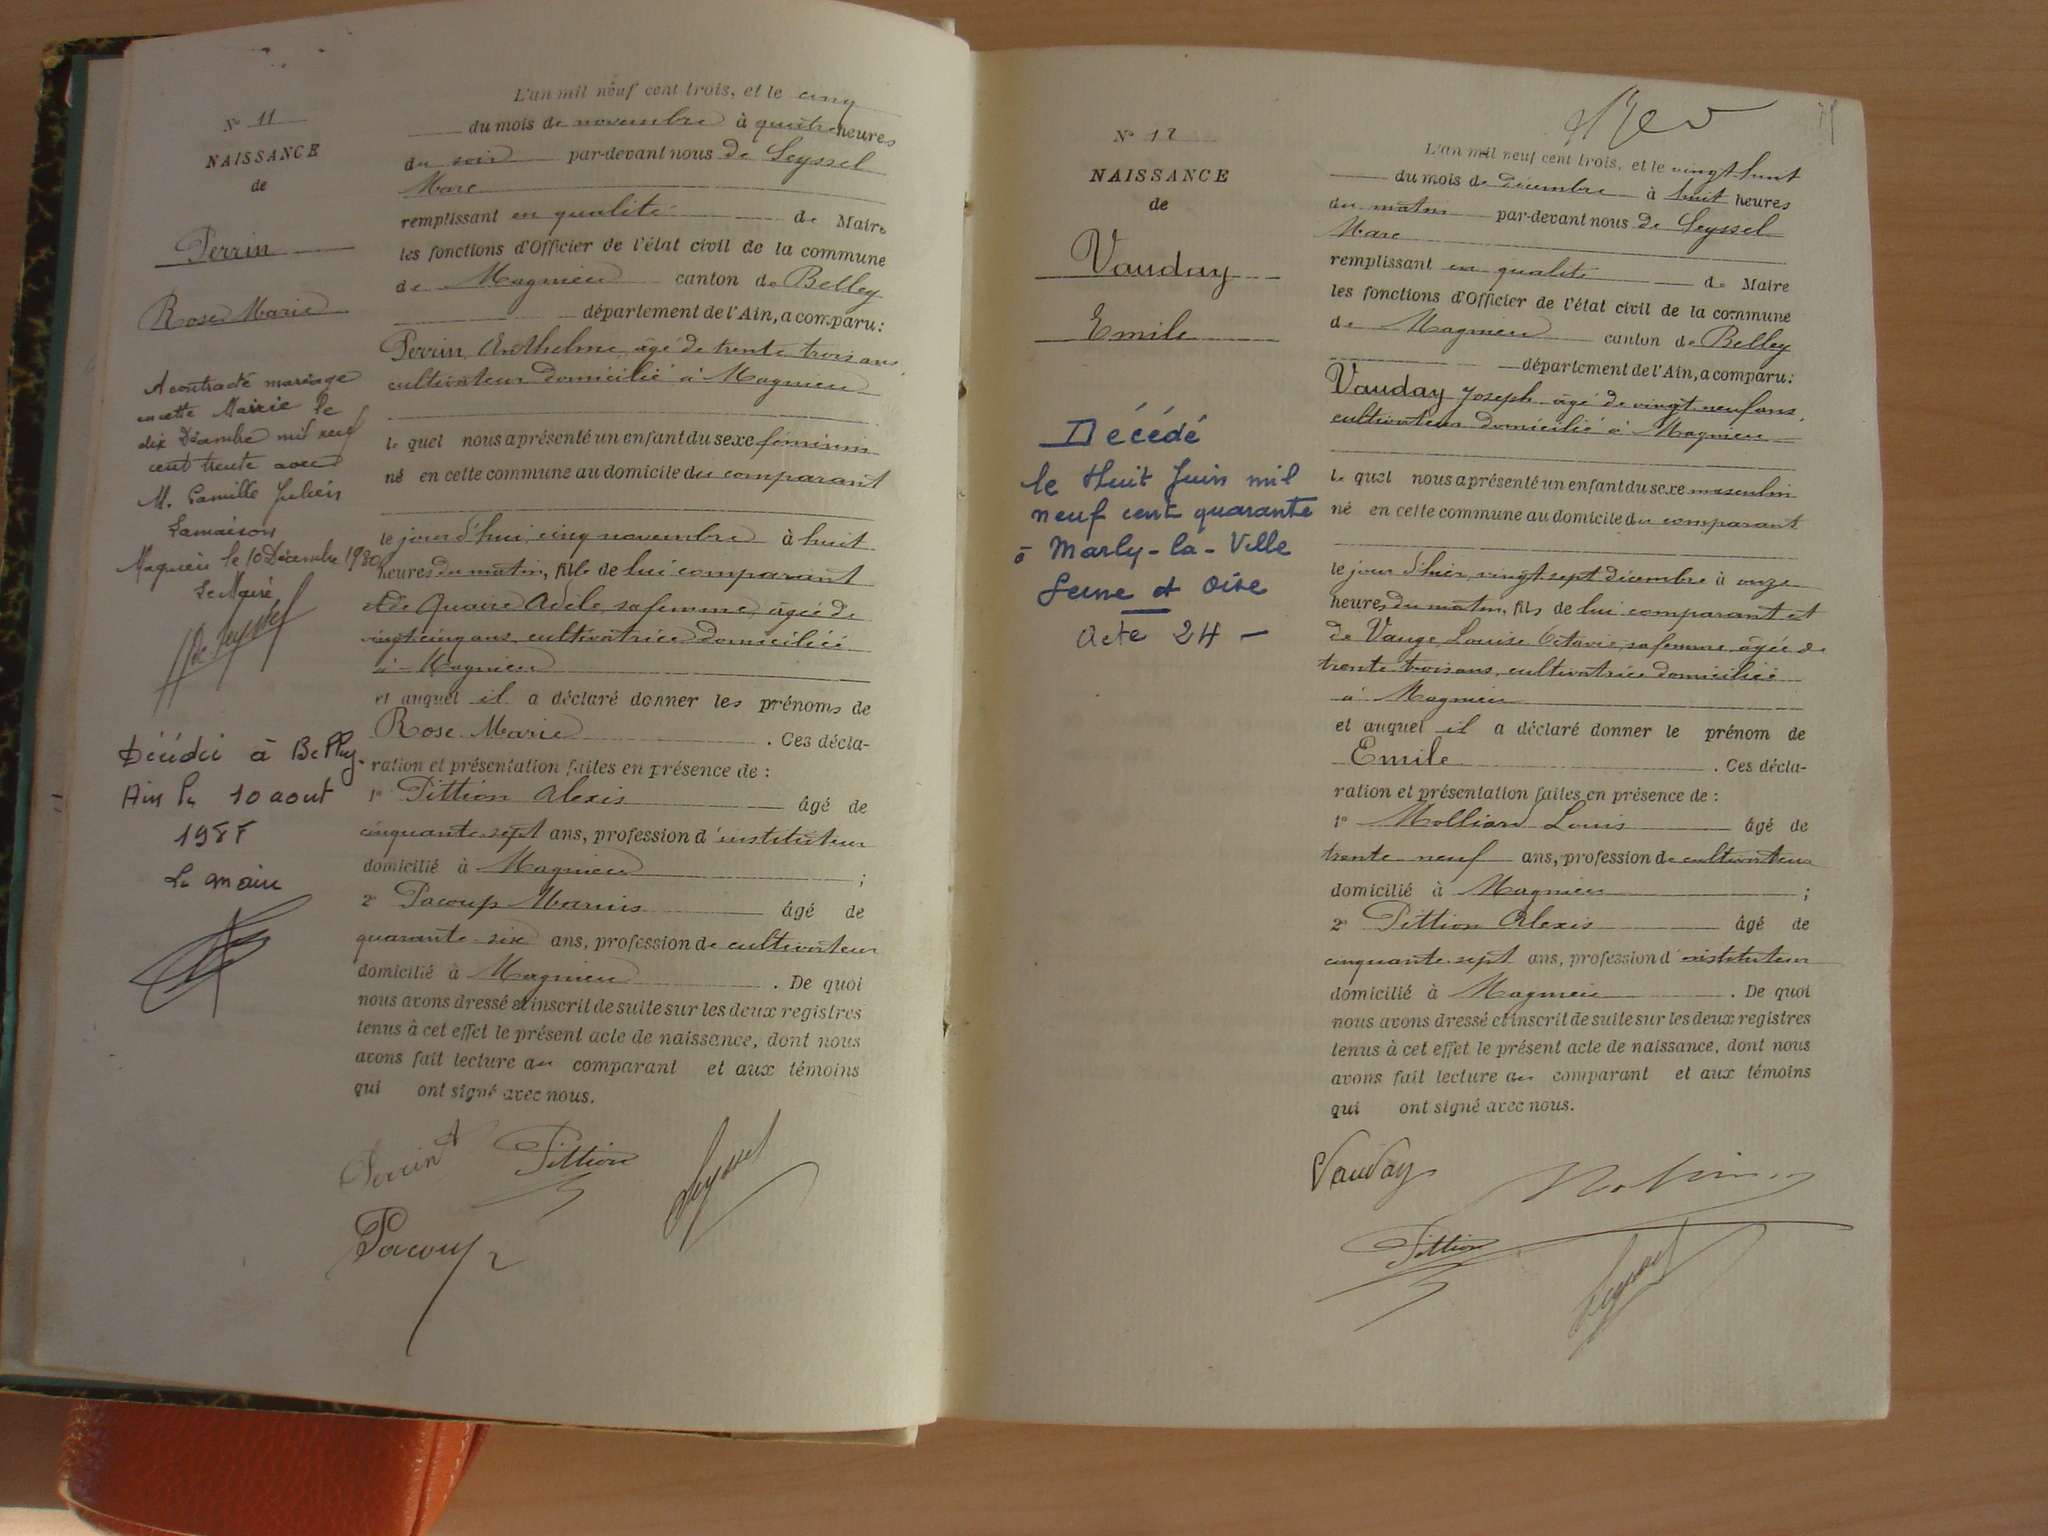 N° 11
NAISSANCE
de
Perrin
Rose Marie
A contracté mariage
en cette Mairie le
dix Décembre mil neuf
cent trente avec
M. Camille Julien
Lamaison
Magnieu le 10 Décembre 1930
Le Maire
de Seyssel
Décédée à Belley
Ain le 10 aout
Le maire
L'an mil neuf cent trois, et le cinq
du mois de novembre à quatre heures
du soir par-devant nous de Seyssel
Marc
remplissant en qualité de Maire
les fonctions d'Officier de l'état civil de la commune
de Magnieu canton de Belley
département de l'Ain, a comparu:
Perrin Anthelme, âgé de trente trois ans,
cultivateur domicilié à Magnieu
le quel nous a présenté un enfant du sexe féminin
né en cette commune au domicile du comparant
le jour d'hui, cinq novembre à huit
heures du matin, fille de lui comparant
et de Quaire Adèle, sa femme, âgée de
vingt cinq ans, cultivatrice domiciliée
à Magnieu
et auquel il a déclaré donner les prénoms de
Rose Marie. Ces décla-
ration et présentation faites en présence de :
1° Pittion Alexis âgé de
cinquante sept ans, profession d'instituteur
domicilié à Magnieu ;
2° Pacoup Marius âgé de
quarante six ans, profession de cultivateur
domicilié à Magnieu . De quoi
nous avons dressé et inscrit de suite sur les deux registres
tenus à cet effet le présent acte de naissance, dont nous
avons fait lecture au comparant et aux témoins
qui ont signé avec nous.
Perrin A Pittion de Seyssel
Pacoup
N° 12
NAISSANCE
de
Vauday
Emile
Décédé
le Huit Juin mil
neuf cent quarante
à Marly-la-Ville
Seine et Oise
Acte 24
L'an mil neuf cent trois, et le vingt huit
du mois de décembre à huit heures
du matin par-devant nous de Seyssel
Marc
remplissant en qualité de Maire
les fonctions d'Officier de l'état civil de la commune
de Magnieu canton de Belley
département de l'Ain, a comparu:
Vauday Joseph âgé de vingt neuf ans,
cultivateur domicilié à Magnieu
le quel nous a présenté un enfant du sexe masculin
né en cette commune au domicile du comparant
le jour d'hier, vingt sept décembre à onze
heures du matin, fils de lui comparant et
de Vauge Louise Octavie, sa femme, âgée de
trente trois ans, cultivatrice domiciliée
à Magnieu
et auquel il a déclaré donner le prénom de
Emile . Ces décla-
ration et présentation faites en présence de :
1° Molliand Louis âgé de
trente neuf ans, profession de cultivateur
domicilié à Magnieu ;
2° Pittion Alexis âgé de
cinquante sept ans, profession d'instituteur
domicilié à Magnieu . De quoi
nous avons dressé et inscrit de suite sur les deux registres
tenus à cet effet le présent acte de naissance, dont nous
avons fait lecture au comparant et aux témoins
qui ont signé avec nous.
Vauday
Pittion de Seyssel